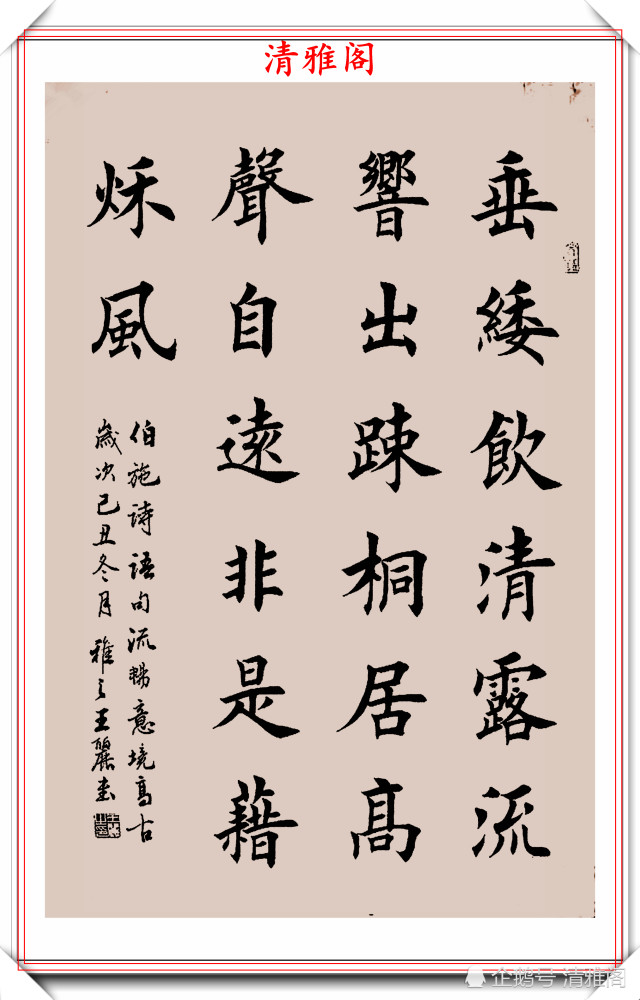 清雅阁
垂緌飲清露流
響出踈桐居高
聲自遠非是藉
秌風
伯施诗语句流暢意境高古
歲次己丑冬月雅之王麗書
企鹅号 清雅阁